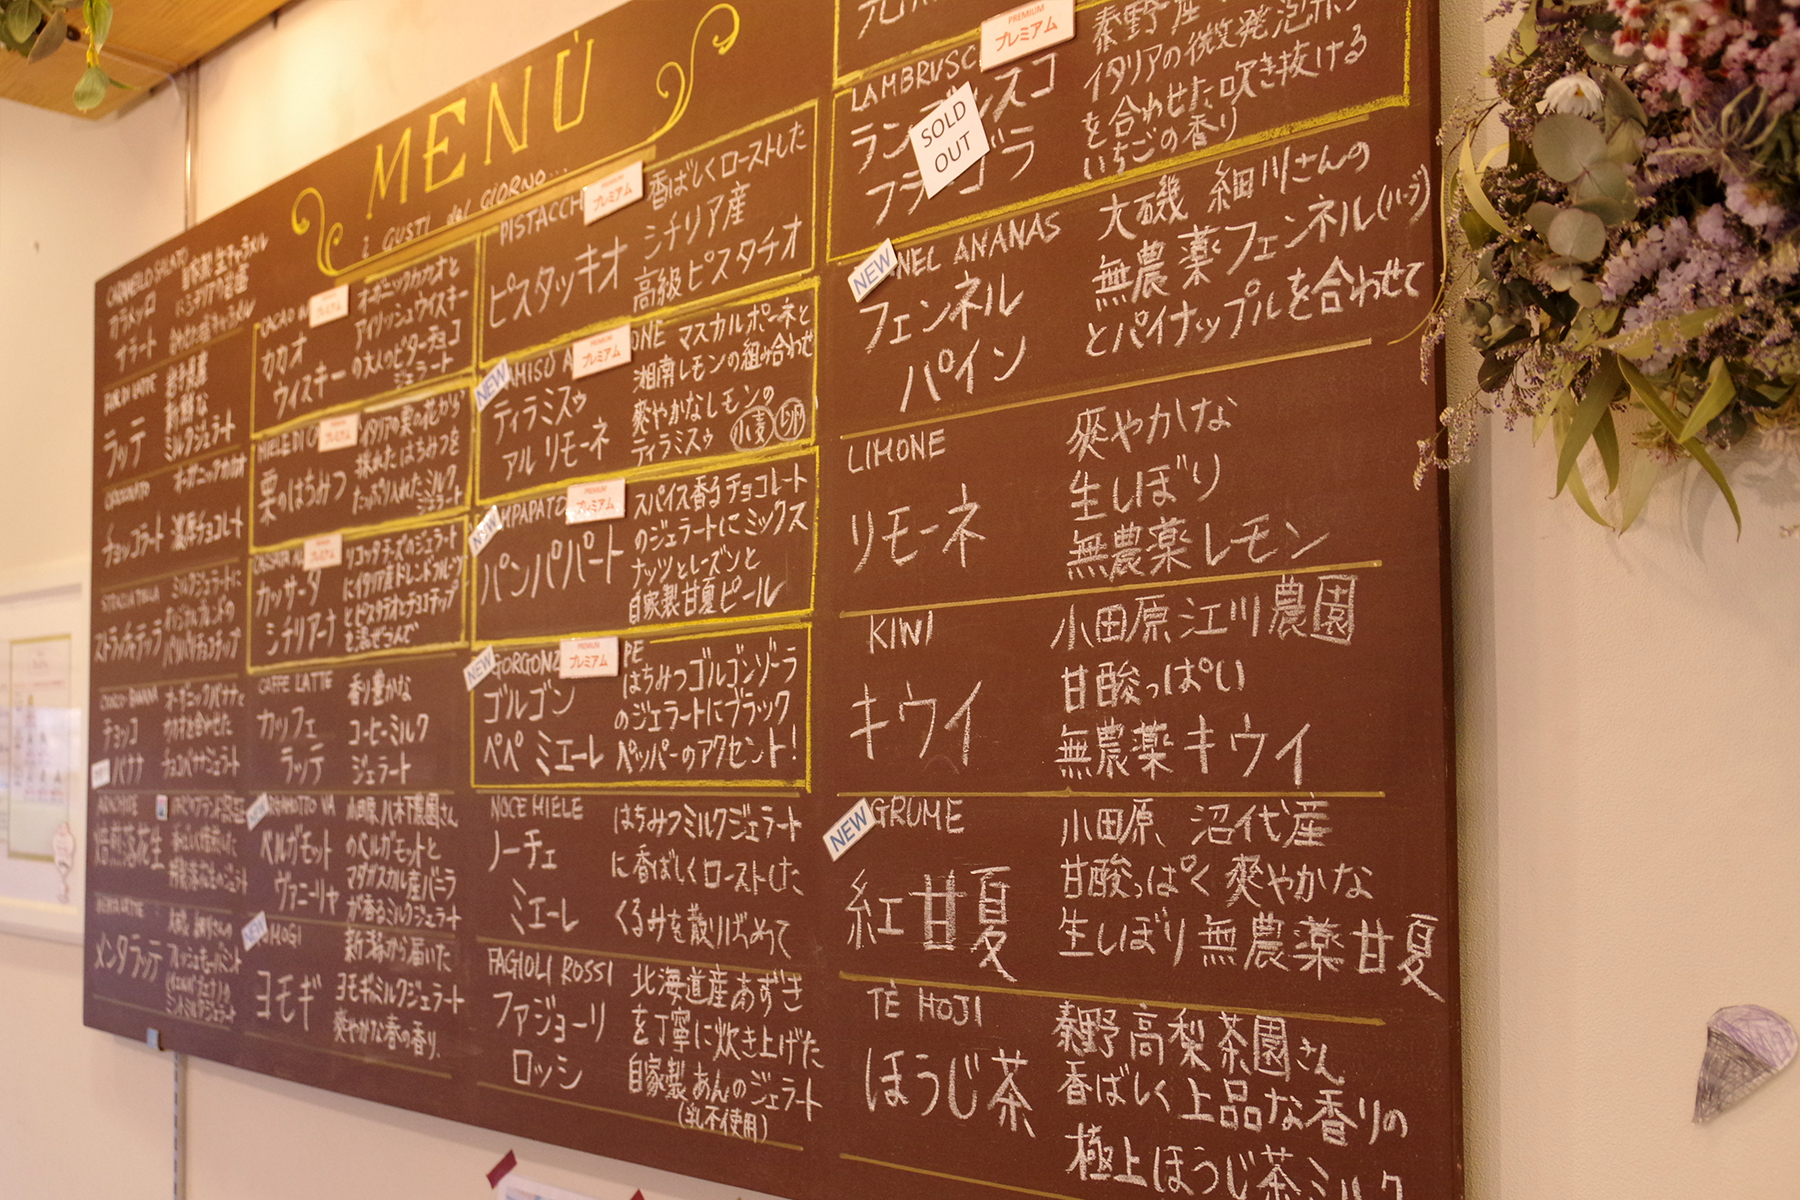 MENÙ
i GUSTI del GIORNO...
カラメッロ
サラート
ラッテ
岩手県産
新鮮な
ミルクジェラート
オーガニックカカオ
チョッコラート
濃厚チョコレート
ストラッチャテッラ
ミルクジェラートに
パリパリチョコチップ
チョコ
バナナ
オーガニックバナナと
チョコバナナジェラート
焙煎落花生
メンタラッテ
プレミアム
カカオ
ウィスキー
オーガニックカカオと
アイリッシュウイスキー
の大人のビターチョコ
ジェラート
MIELE DI
プレミアム
栗のはちみつ
イタリアの栗の花から
採れたはちみつを
たっぷり入れたミルク
ジェラート
プレミアム
カッサータ
シチリアーナ
リコッタチーズのジェラート
にイタリア産ドレンドフルーツ
とピスタチオとチョコチップ
を混ぜ込んで
CAFFE LATTE
カッフェ
ラッテ
香り豊かな
コーヒーミルク
ジェラート
NEW
ベルガモット
ヴァニーリャ
小田原 八木下農園さん
のベルガモットと
マダガスカル産バニラ
が香るミルクジェラート
NEW
ヨモギ
新潟から届いた
ヨモギのミルクジェラート
爽やかな春の香り.
PISTACCH
PREMIUM
プレミアム
ピスタッキオ
香ばしくローストした
シチリア産
高級ピスタチオ
NEW
PREMIUM
プレミアム
ティラミスゥ
アル リモーネ
マスカルポーネと
湘南レモンの組み合わせ
爽やかなレモンの
ティラミスゥ 小麦 卵
NEW
MPAPATO
PREMIUM
プレミアム
パンパパート
スパイス香るチョコレート
のジェラートにミックス
ナッツとレーズンと
自家製甘夏ピール
NEW
GORGONZ
PREMIUM
プレミアム
PE
ゴルゴン
ペペ ミエーレ
はちみつゴルゴンゾーラ
のジェラートにブラック
ペッパーのアクセント!
NOCE MIELE
ノーチェ
ミエーレ
はちみつミルクジェラート
に香ばしくローストした
くるみを散りばめて
FAGIOLI ROSSI
ファジョーリ
ロッシ
北海道産あずき
を丁寧に炊き上げた
自家製あんのジェラート
(乳不使用)
LAMBRUSC
PREMIUM
プレミアム
SOLD
OUT
フラゴラ
秦野産
イタリアの微発泡赤
を合わせた吹き抜ける
いちごの香り
NEW
NEL ANANAS
フェンネル
パイン
大磯 細川さんの
無農薬フェンネル(ハーブ)
とパイナップルを合わせて
LIMONE
リモーネ
爽やかな
生しぼり
無農薬レモン
KIWI
キウイ
小田原江川農園
甘酸っぱい
無農薬キウイ
NEW
GRUME
紅甘夏
小田原 沼代産
甘酸っぱく爽やかな
生しぼり無農薬甘夏
TÈ HOJI
ほうじ茶
秦野高梨茶園さん
香ばしく上品な香りの
極上ほうじ茶ミルク